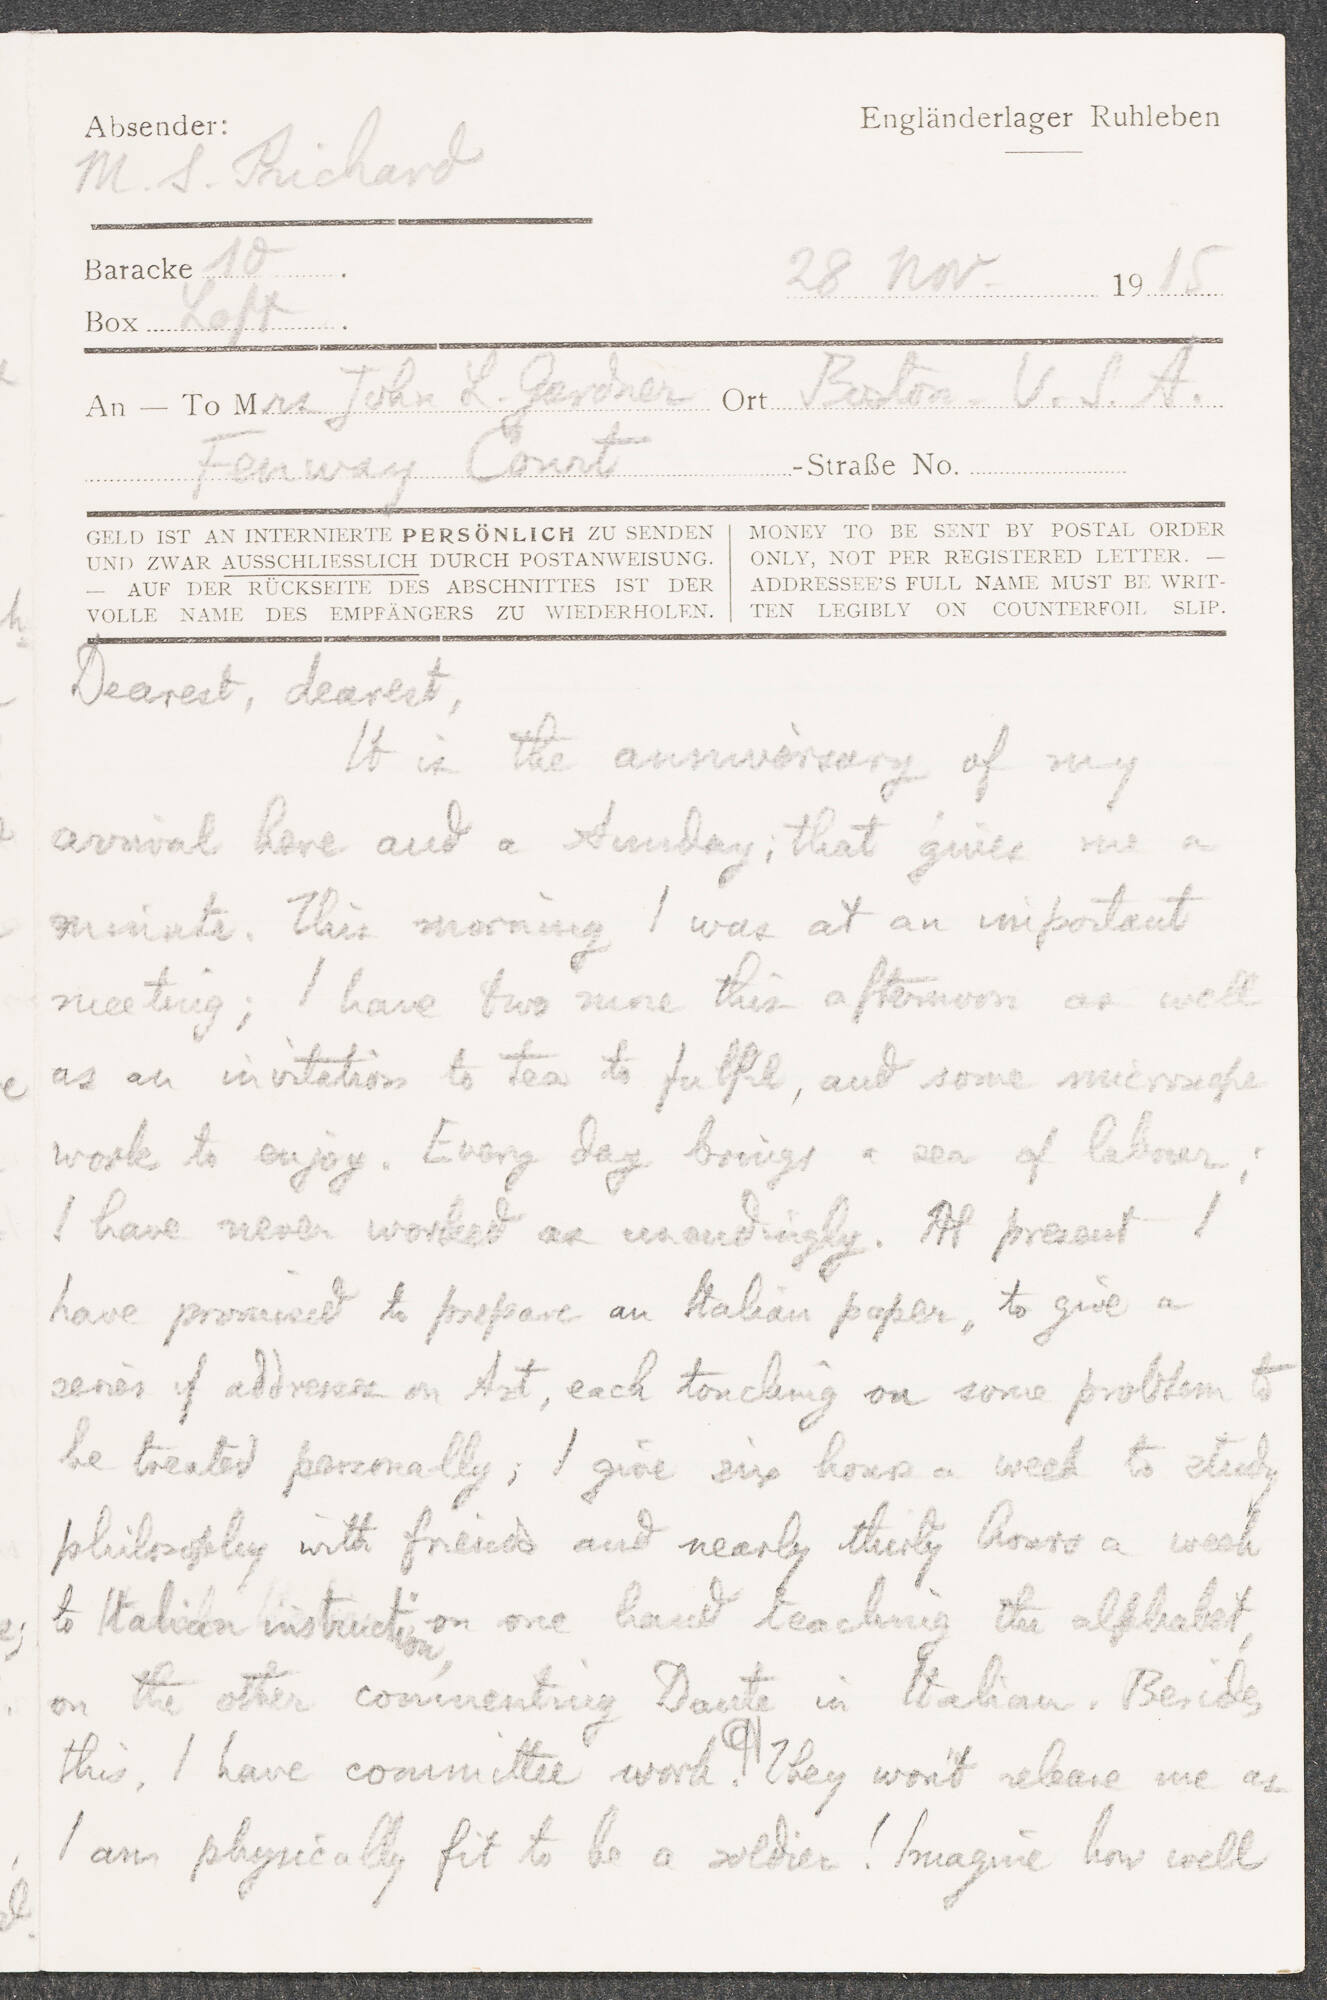 Absender:
M. S. Prichard
Engländerlager Ruhleben
Baracke 10 .
Box Loft .
28 Nov. 1915
An — To Mrs John L. Gardner Ort Boston. U.S.A.
Fenway Court -Straße No.
GELD IST AN INTERNIERTE PERSÖNLICH ZU SENDEN
UND ZWAR AUSSCHLIESSLICH DURCH POSTANWEISUNG.
— AUF DER RÜCKSEITE DES ABSCHNITTES IST DER
VOLLE NAME DES EMPFÄNGERS ZU WIEDERHOLEN.
MONEY TO BE SENT BY POSTAL ORDER
ONLY, NOT PER REGISTERED LETTER. —
ADDRESSEE'S FULL NAME MUST BE WRIT-
TEN LEGIBLY ON COUNTERFOIL SLIP.
Dearest, dearest,
It is the anniversary of my
arrival here and a Sunday; that gives me a
minute. This morning I was at an important
meeting; I have two more this afternoon as well
as an invitation to tea to fulfil, and some microscope
work to enjoy. Every day brings a sea of labour;
I have never worked as unendingly. At present I
have promised to prepare an Italian paper, to give a
series of addresses on Art, each touching on some problem to
be treated personally; I give six hours a week to study
philosophy with friends and nearly thirty hours a week
to Italian instruction, on one hand teaching the alphabet,
on the other commenting Dante in Italian. Besides
this, I have committee work. ¶ They won't release me as
I am physically fit to be a soldier! Imagine how well